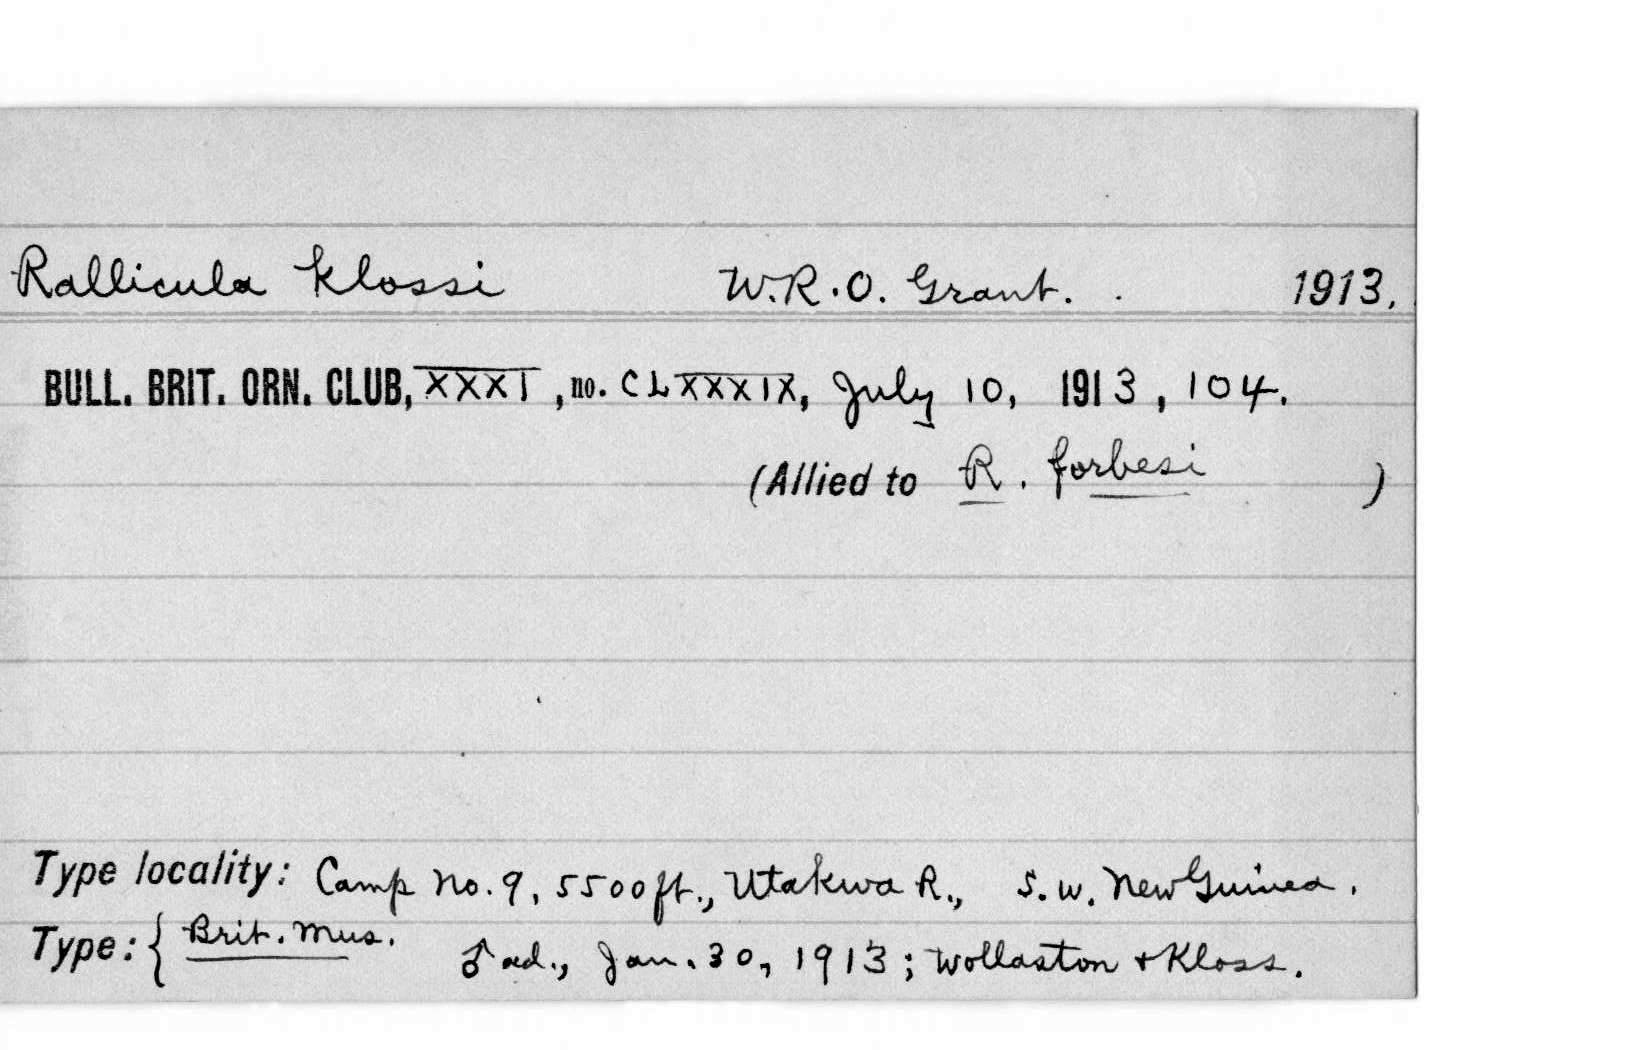 Rallicula klossi W.R.O. Grant. 1913.
BULL. BRIT. ORN. CLUB, XXXI, no. CLXXXIX, July 10, 1913, 104.
(Allied to R. forbesi )
Type locality: Camp No. 9, 5500 ft., Utakwa R., S.W. New Guinea.
Type: { Brit. Mus. ♂ ad., Jan. 30, 1913; Wollaston + Kloss.